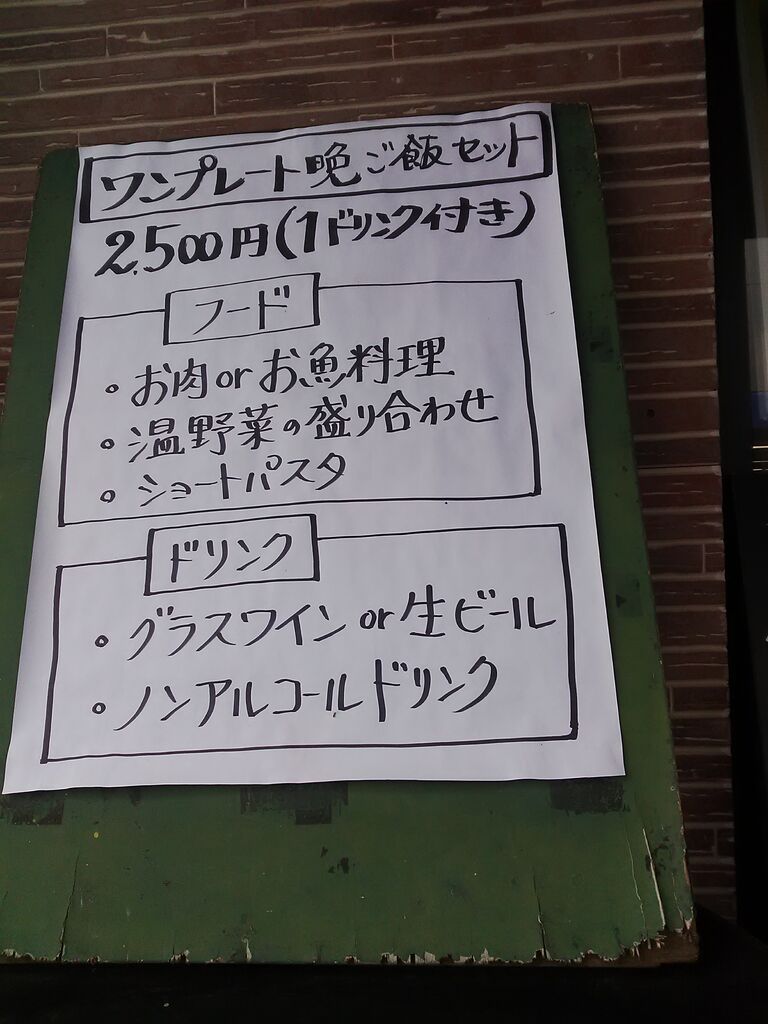 ワンプレート晩ご飯セット
2,500円(1ドリンク付き)
フード
・お肉orお魚料理
・温野菜の盛り合わせ
・ショートパスタ
ドリンク
・グラスワインor生ビール
・ノンアルコールドリンク